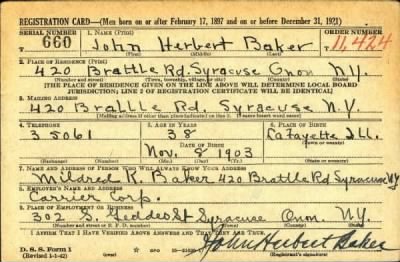 REGISTRATION CARD—(Men born on or after February 17, 1897 and on or before December 31, 1921)
SERIAL NUMBER 1. NAME (Print) ORDER NUMBER
U 660 John Herbert Baker 11,424
(First) (Middle) (Last)
2. PLACE OF RESIDENCE (Print)
420 Brattle Rd, Syracuse Onon N.Y.
(Number and street) (Town, township, village, or city) (County) (State)
[THE PLACE OF RESIDENCE GIVEN ON THE LINE ABOVE WILL DETERMINE LOCAL BOARD
JURISDICTION; LINE 2 OF REGISTRATION CERTIFICATE WILL BE IDENTICAL]
3. MAILING ADDRESS
420 Brattle Rd, Syracuse N.Y.
[Mailing address if other than place indicated on line 2. If same insert word same]
4. TELEPHONE 5. AGE IN YEARS 6. PLACE OF BIRTH
35061 38 LaFayette Ill.
DATE OF BIRTH
Nov. 8 1903
7. NAME AND ADDRESS OF PERSON WHO WILL ALWAYS KNOW YOUR ADDRESS
Mildred K. Baker 420 Brattle Rd Syracuse NY
8. EMPLOYER'S NAME AND ADDRESS
Carrier Corp.
9. PLACE OF EMPLOYMENT OR BUSINESS
302 S. Geddes St Syracuse Onon. NY.
(Number and street or R. F. D. number) (Town) (County) (State)
I AFFIRM THAT I HAVE VERIFIED ABOVE ANSWERS AND THAT THEY ARE TRUE.
D. S. S. Form 1
(Revised 1-1-42) ☆ GPO John Herbert Baker